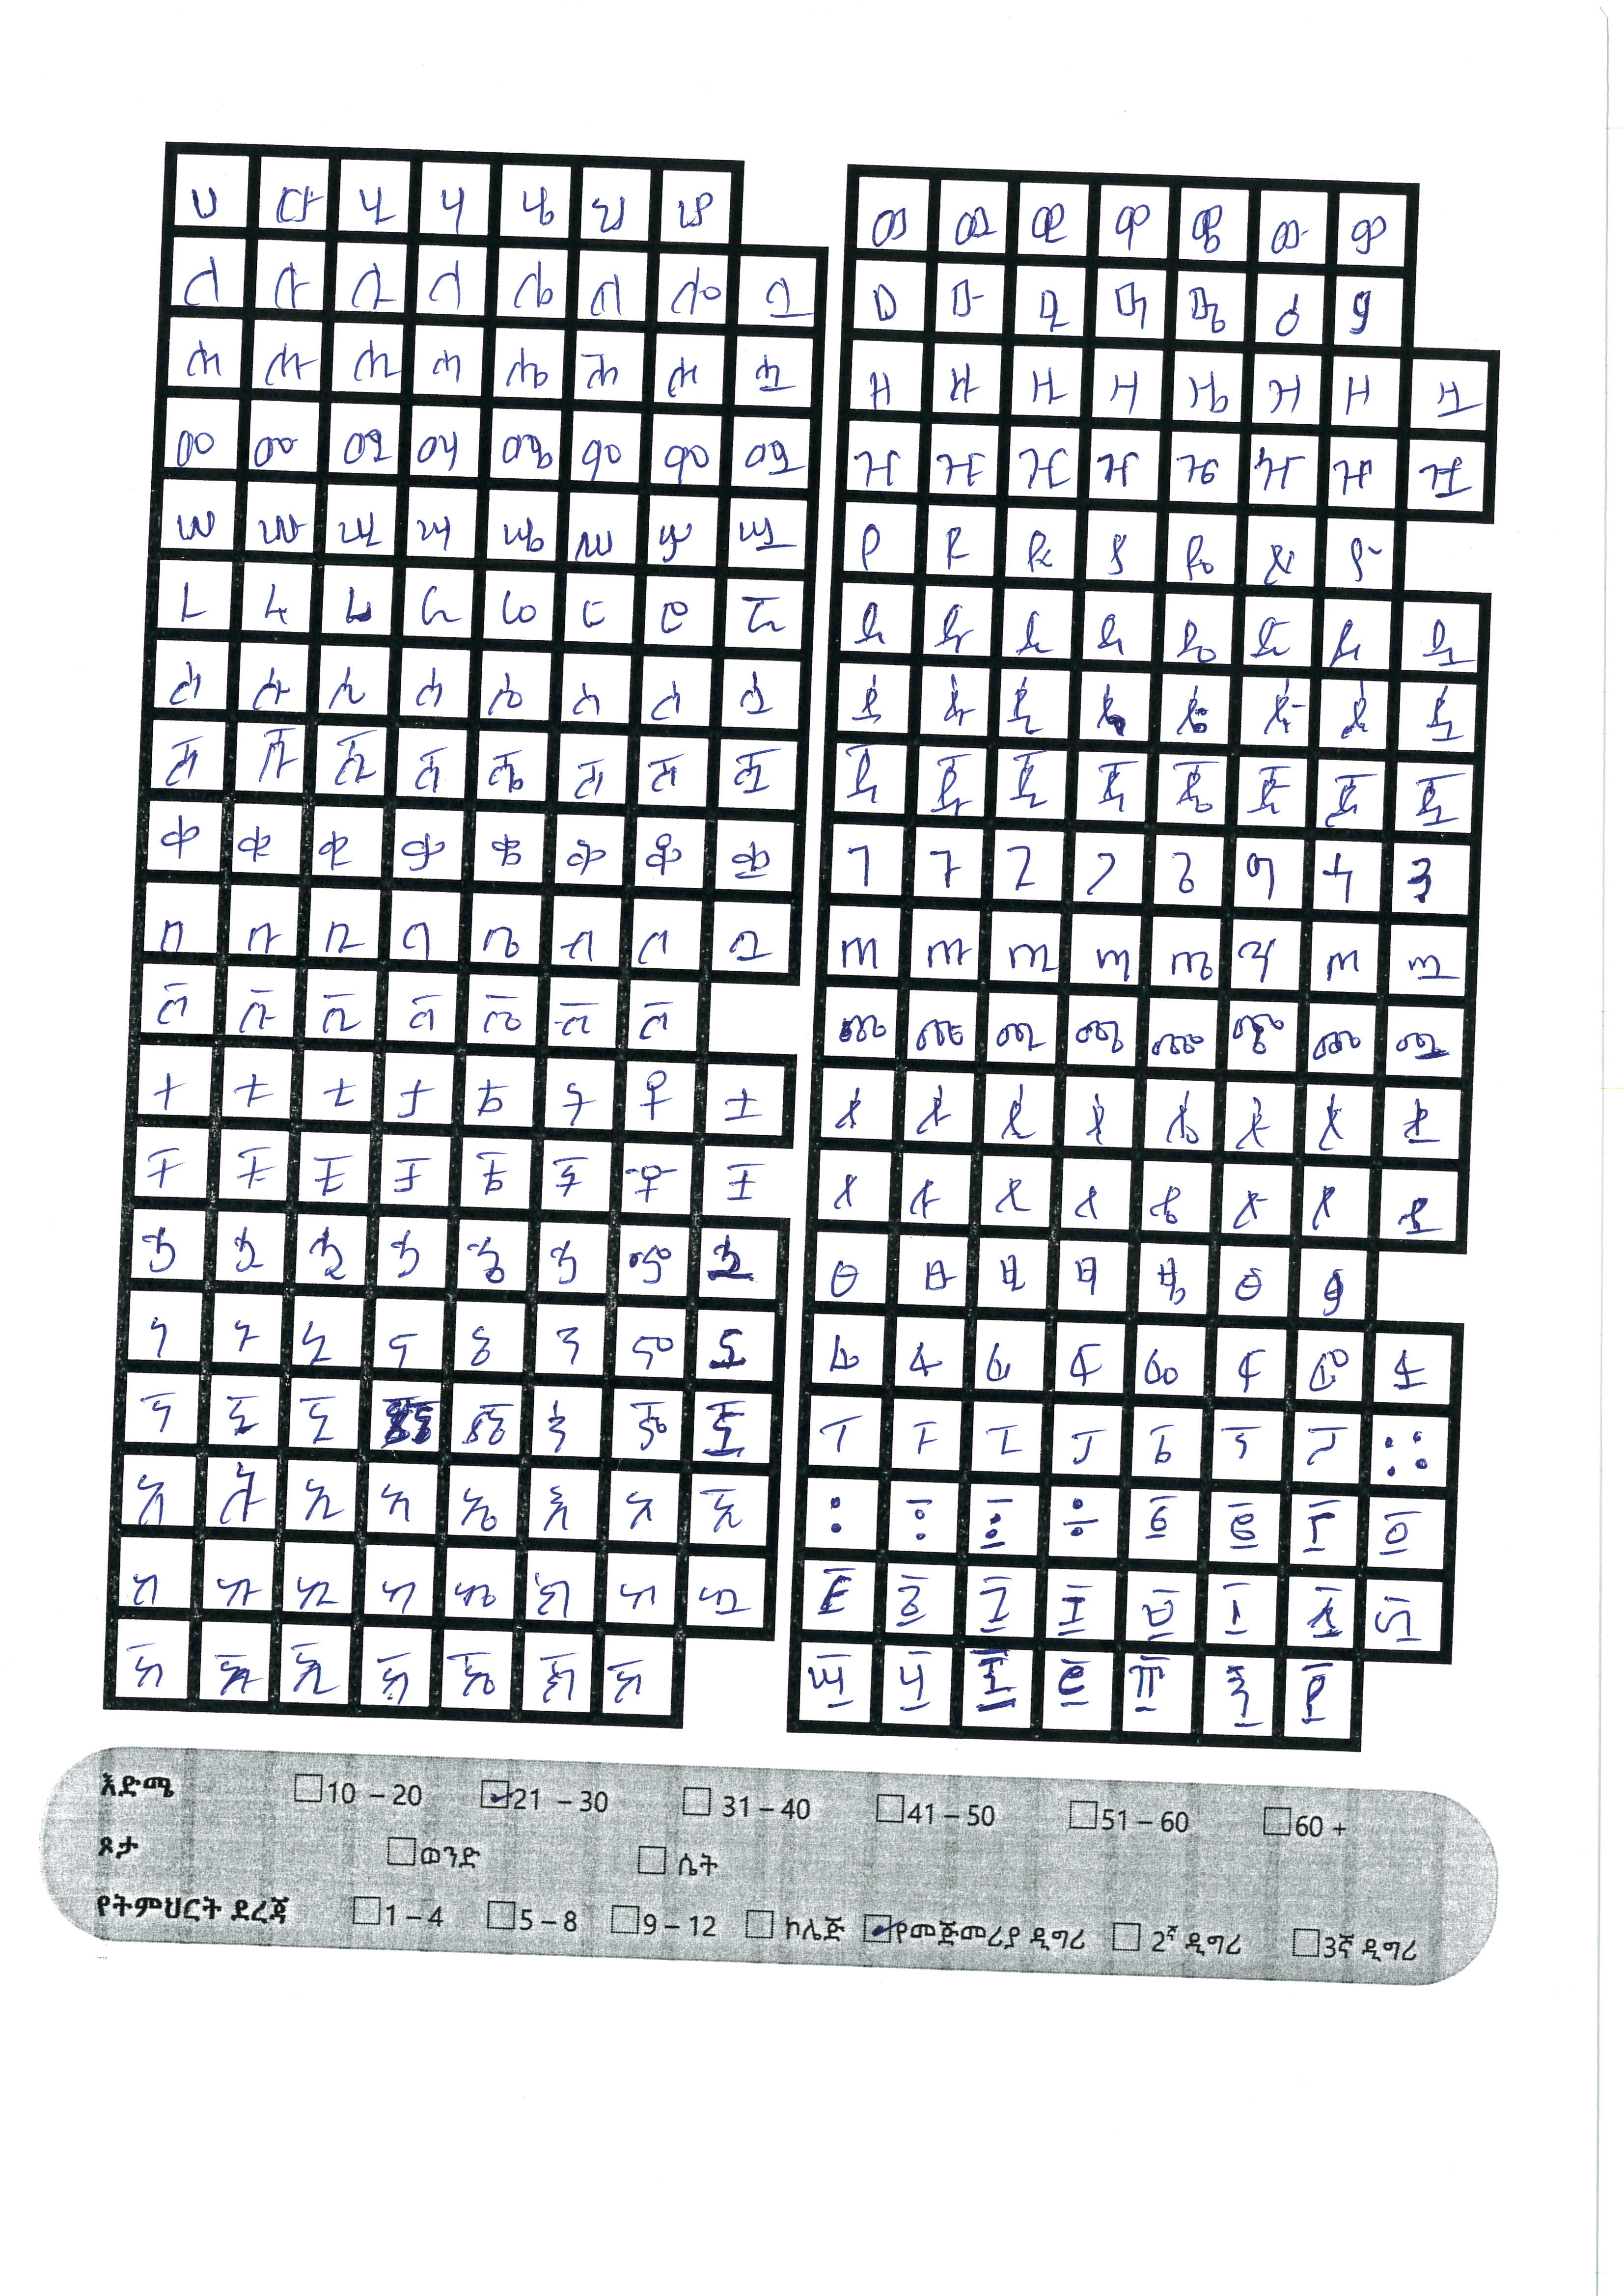 ሀ ሁ ሂ ሃ ሄ ህ ሆ
ለ ሉ ሊ ላ ሌ ል ሎ ሏ
ሐ ሑ ሒ ሓ ሔ ሕ ሖ ሗ
መ ሙ ሚ ማ ሜ ም ሞ ሟ
ሠ ሡ ሢ ሣ ሤ ሥ ሦ ሧ
ረ ሩ ሪ ራ ሬ ር ሮ ሯ
ሰ ሱ ሲ ሳ ሴ ስ ሶ ሷ
ሸ ሹ ሺ ሻ ሼ ሽ ሾ ሿ
ቀ ቁ ቂ ቃ ቄ ቅ ቆ ቋ
በ ቡ ቢ ባ ቤ ብ ቦ ቧ
ቨ ቩ ቪ ቫ ቬ ቭ ቮ
ተ ቱ ቲ ታ ቴ ት ቶ ቷ
ቸ ቹ ቺ ቻ ቼ ች ቾ ቿ
ኀ ኁ ኂ ኃ ኄ ኅ ኆ ኋ
ነ ኑ ኒ ና ኔ ን ኖ ኗ
ኘ ኙ ኚ ኜ ኝ ኞ ኟ
አ ኡ ኢ ኣ ኤ እ ኦ ኧ
ከ ኩ ኪ ካ ኬ ክ ኮ ኳ
ኸ ኹ ኺ ኻ ኼ ኽ ኾ
ወ ዉ ዊ ዋ ዌ ው ዎ
ዐ ዑ ዒ ዓ ዔ ዕ ዖ
ዘ ዙ ዚ ዛ ዜ ዝ ዞ ዟ
ዠ ዡ ዢ ዣ ዤ ዥ ዦ ዧ
የ ዩ ዪ ያ ዬ ይ ዮ
ደ ዱ ዲ ዳ ዴ ድ ዶ ዷ
ዸ ዹ ዺ ዻ ዼ ዽ ዾ ዿ
ጀ ጁ ጂ ጃ ጄ ጅ ጆ ጇ
ገ ጉ ጊ ጋ ጌ ግ ጎ ጓ
ጠ ጡ ጢ ጣ ጤ ጥ ጦ ጧ
ጨ ጩ ጪ ጫ ጬ ጭ ጮ ጯ
ጰ ጱ ጲ ጳ ጴ ጵ ጶ ጷ
ጸ ጹ ጺ ጻ ጼ ጽ ጾ ጿ
ፀ ፁ ፂ ፃ ፄ ፅ ፆ
ፈ ፉ ፊ ፋ ፌ ፍ ፎ ፏ
ፐ ፑ ፒ ፓ ፔ ፕ ፖ ።
፡ ፣ ፤ ÷ ፩ ፪ ፫ ፬
፭ ፮ ፯ ፰ ፱ ፲ ፳ ፴
፵ ፶ ፷ ፸ ፹ ፺ ፻
እድሜ 10 – 20 21 – 30 31 – 40 41 – 50 51 – 60 60 +
ጾታ ወንድ ሴት
የትምህርት ደረጃ 1 – 4 5 – 8 9 – 12 ኮሌጅ የመጀመሪያ ዲግሪ 2ኛ ዲግሪ 3ኛ ዲግሪ